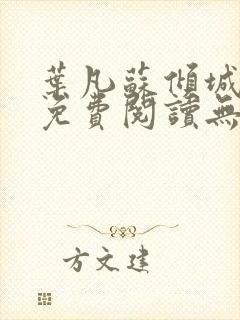 葉凡蘇傾城
免費閱讀無
方文建